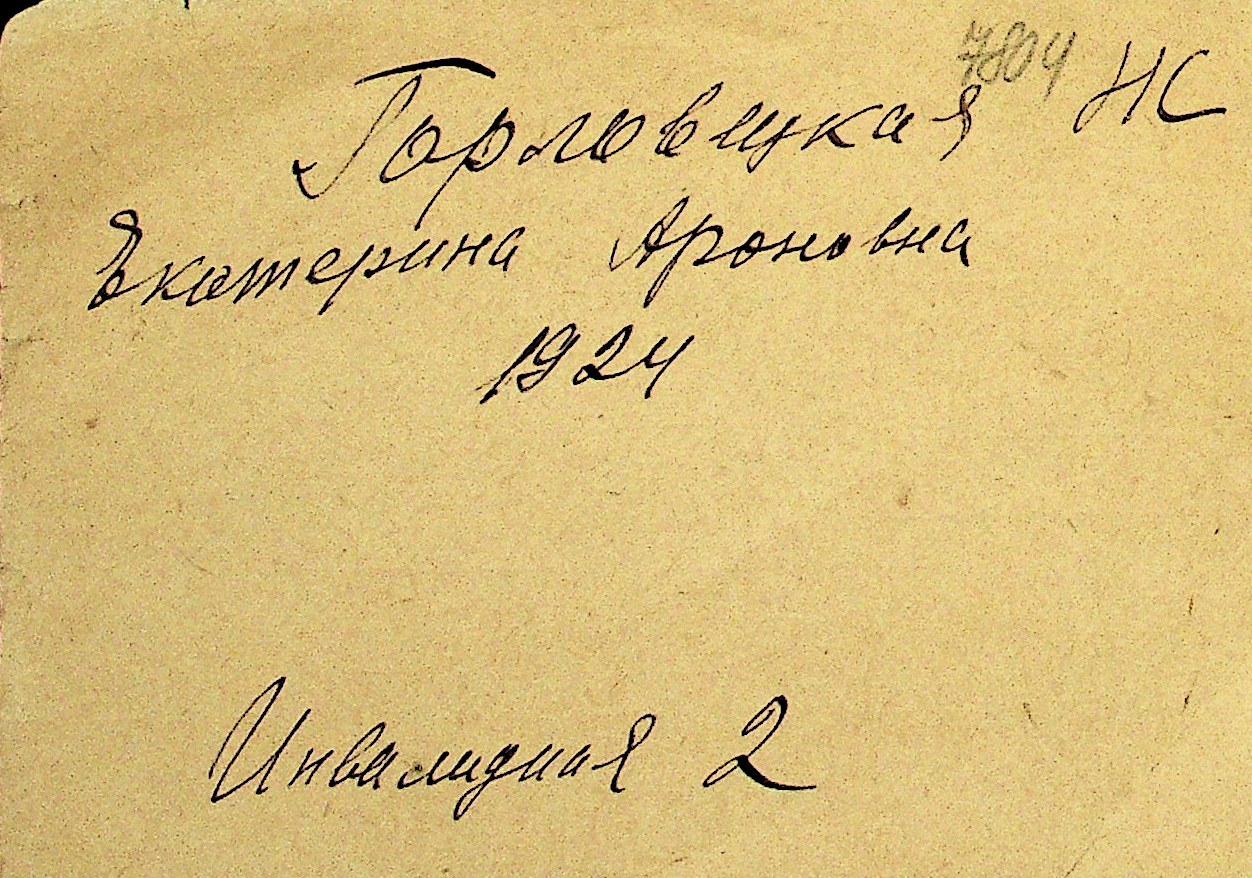 7804 НС
Горловицкая
Екатерина Ароновна
1924
Инвалидная 2